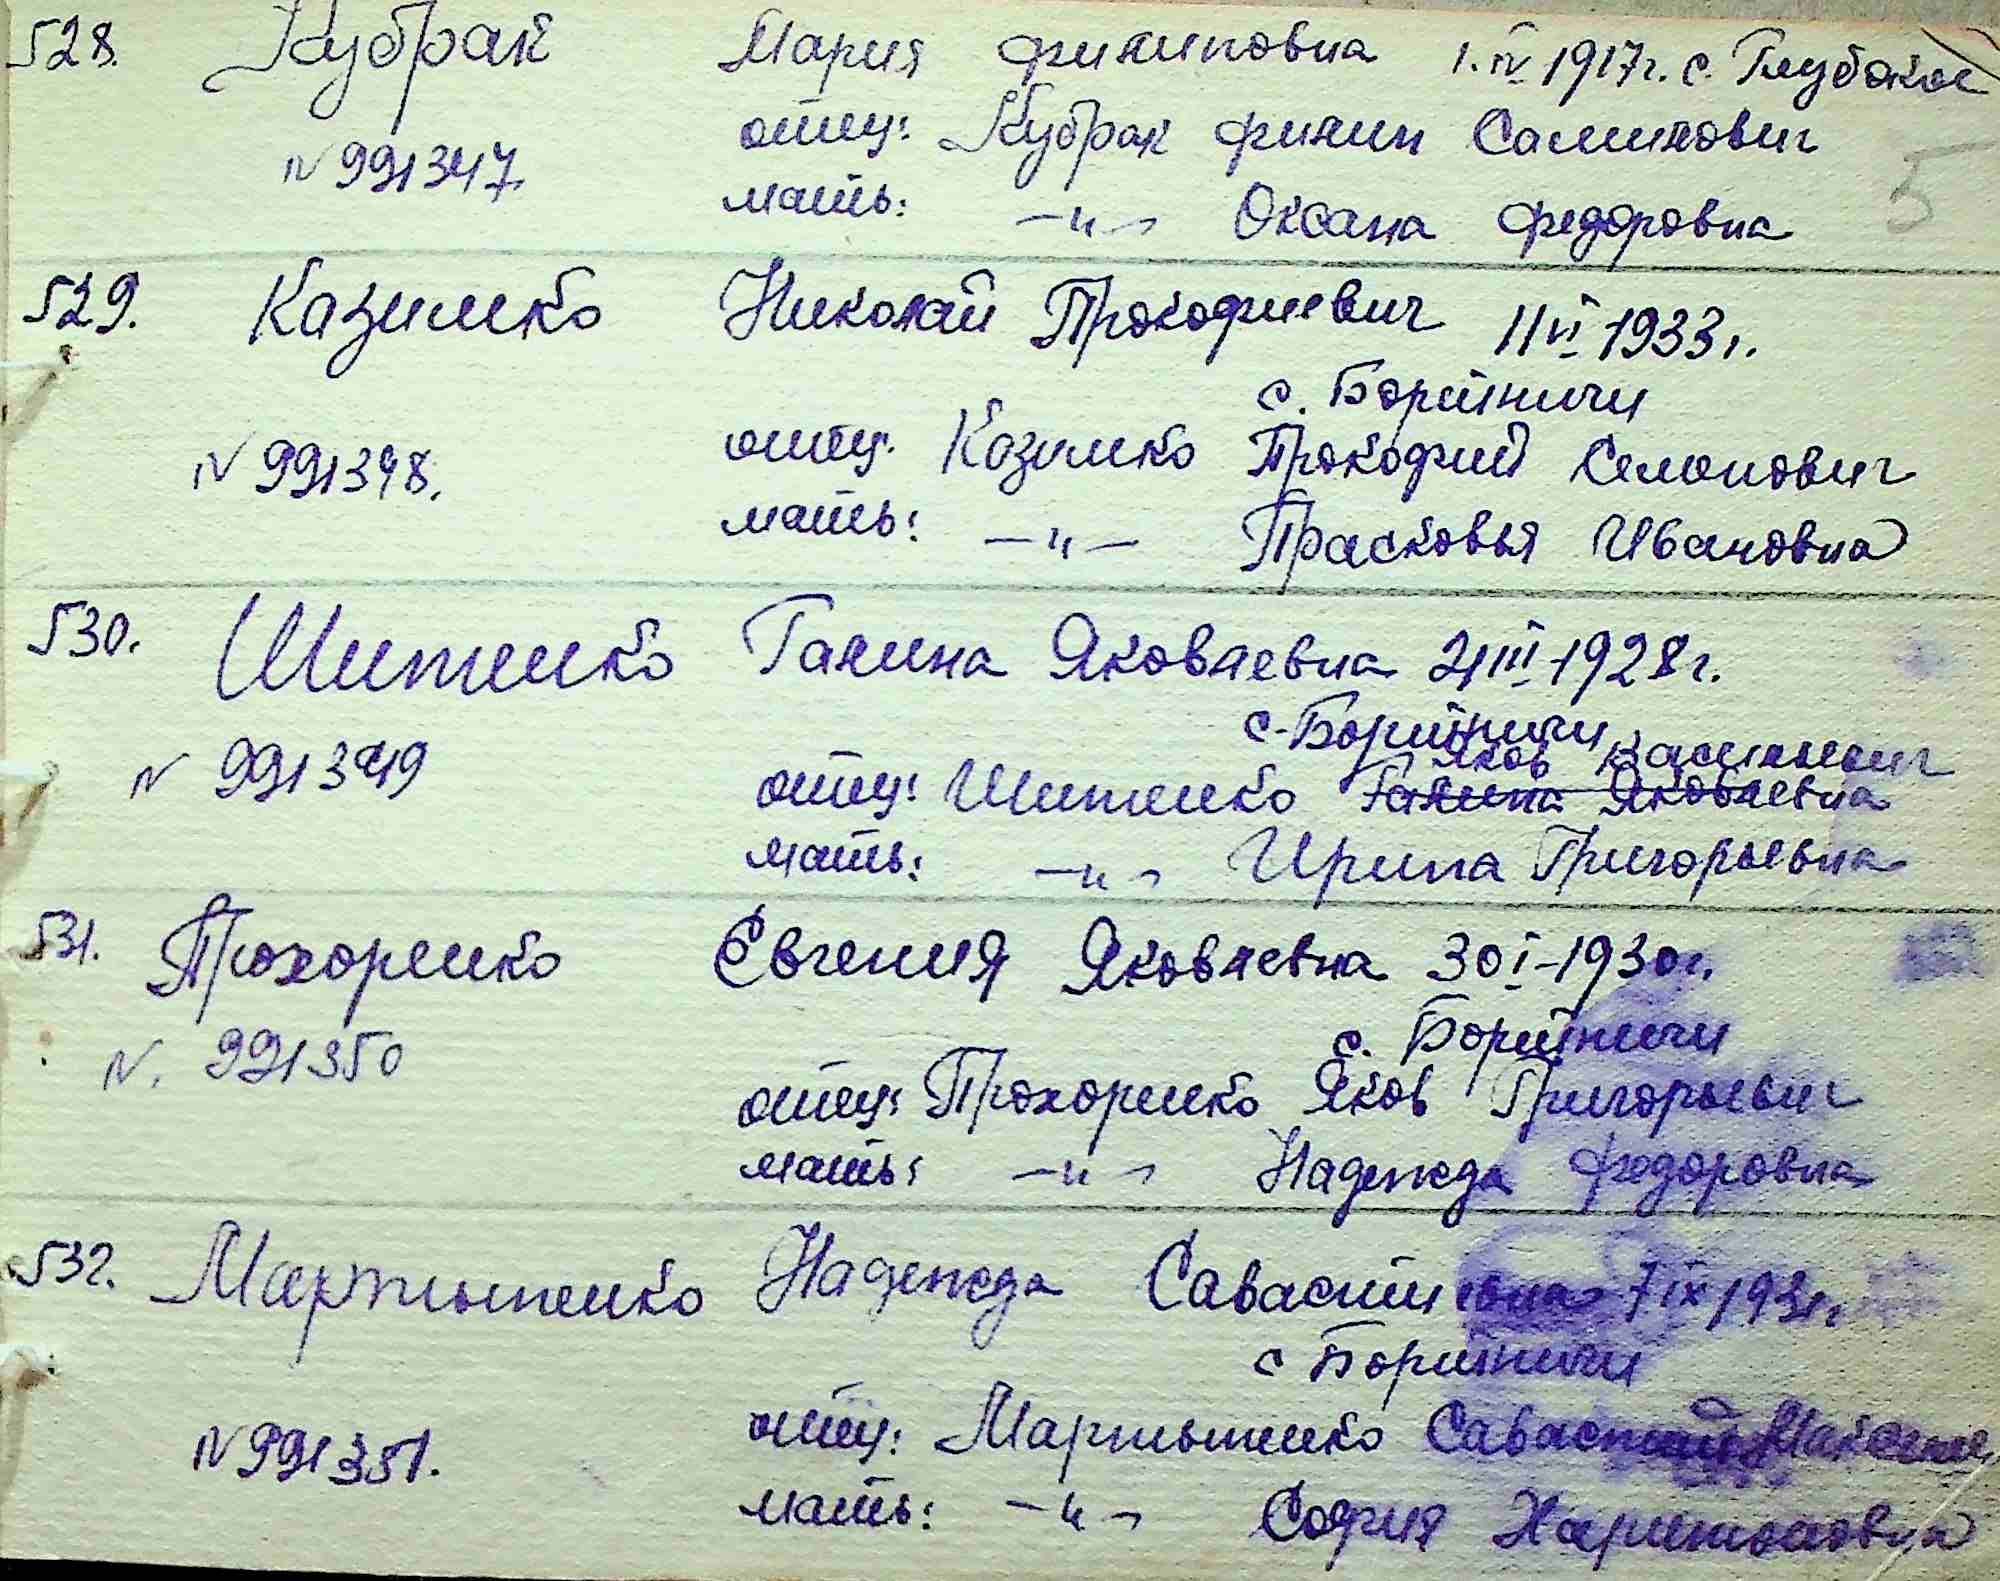 528. Кубрак Мария Филиповна 1.IV 1917г. с. Глубокое
отец: Кубрак Филип Самилович
N 991347. мать: —"— Оксана Федоровна
5
529. Казимко Николай Прокофиевич 11 VI 1933г.
с. Бортничи
N 991348. отец. Казимко Прокофий Семонович
мать: —"— Прасковья Ивановна
530. Шитенко Галина Яковлевна 2 III-1928г.
с. Бортничи
Яков Васильевич
N 991349 отец: Шитенко Галина Яковлевна
мать: —"— Ирина Григорьевна
531. Прохоренко Евгения Яковлевна 30 I-1930г.
с. Бортничи
N. 991350 отец: Прохоренко Яков Григорьевич
мать: —"— Надежда Федоровна
532. Мартыненко Надежда Савастиевна 7 IX 1931г.
с Бортничи
N 991351. отец: Мартыненко Савастий
мать: —"— София Харитоновна